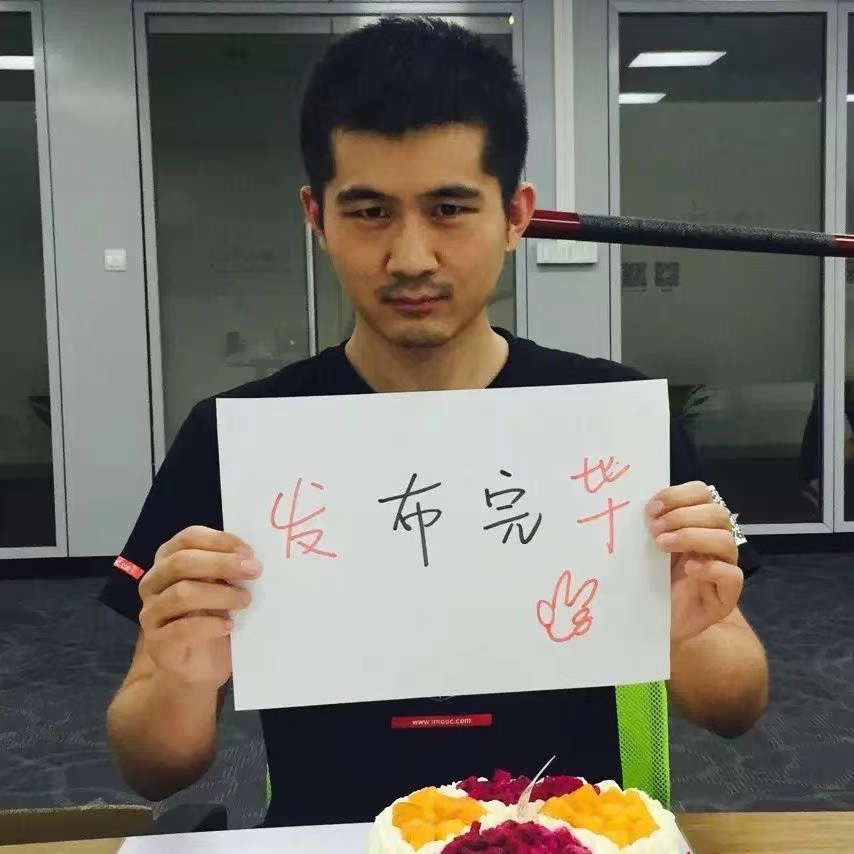 发布完毕
www.imooc.com